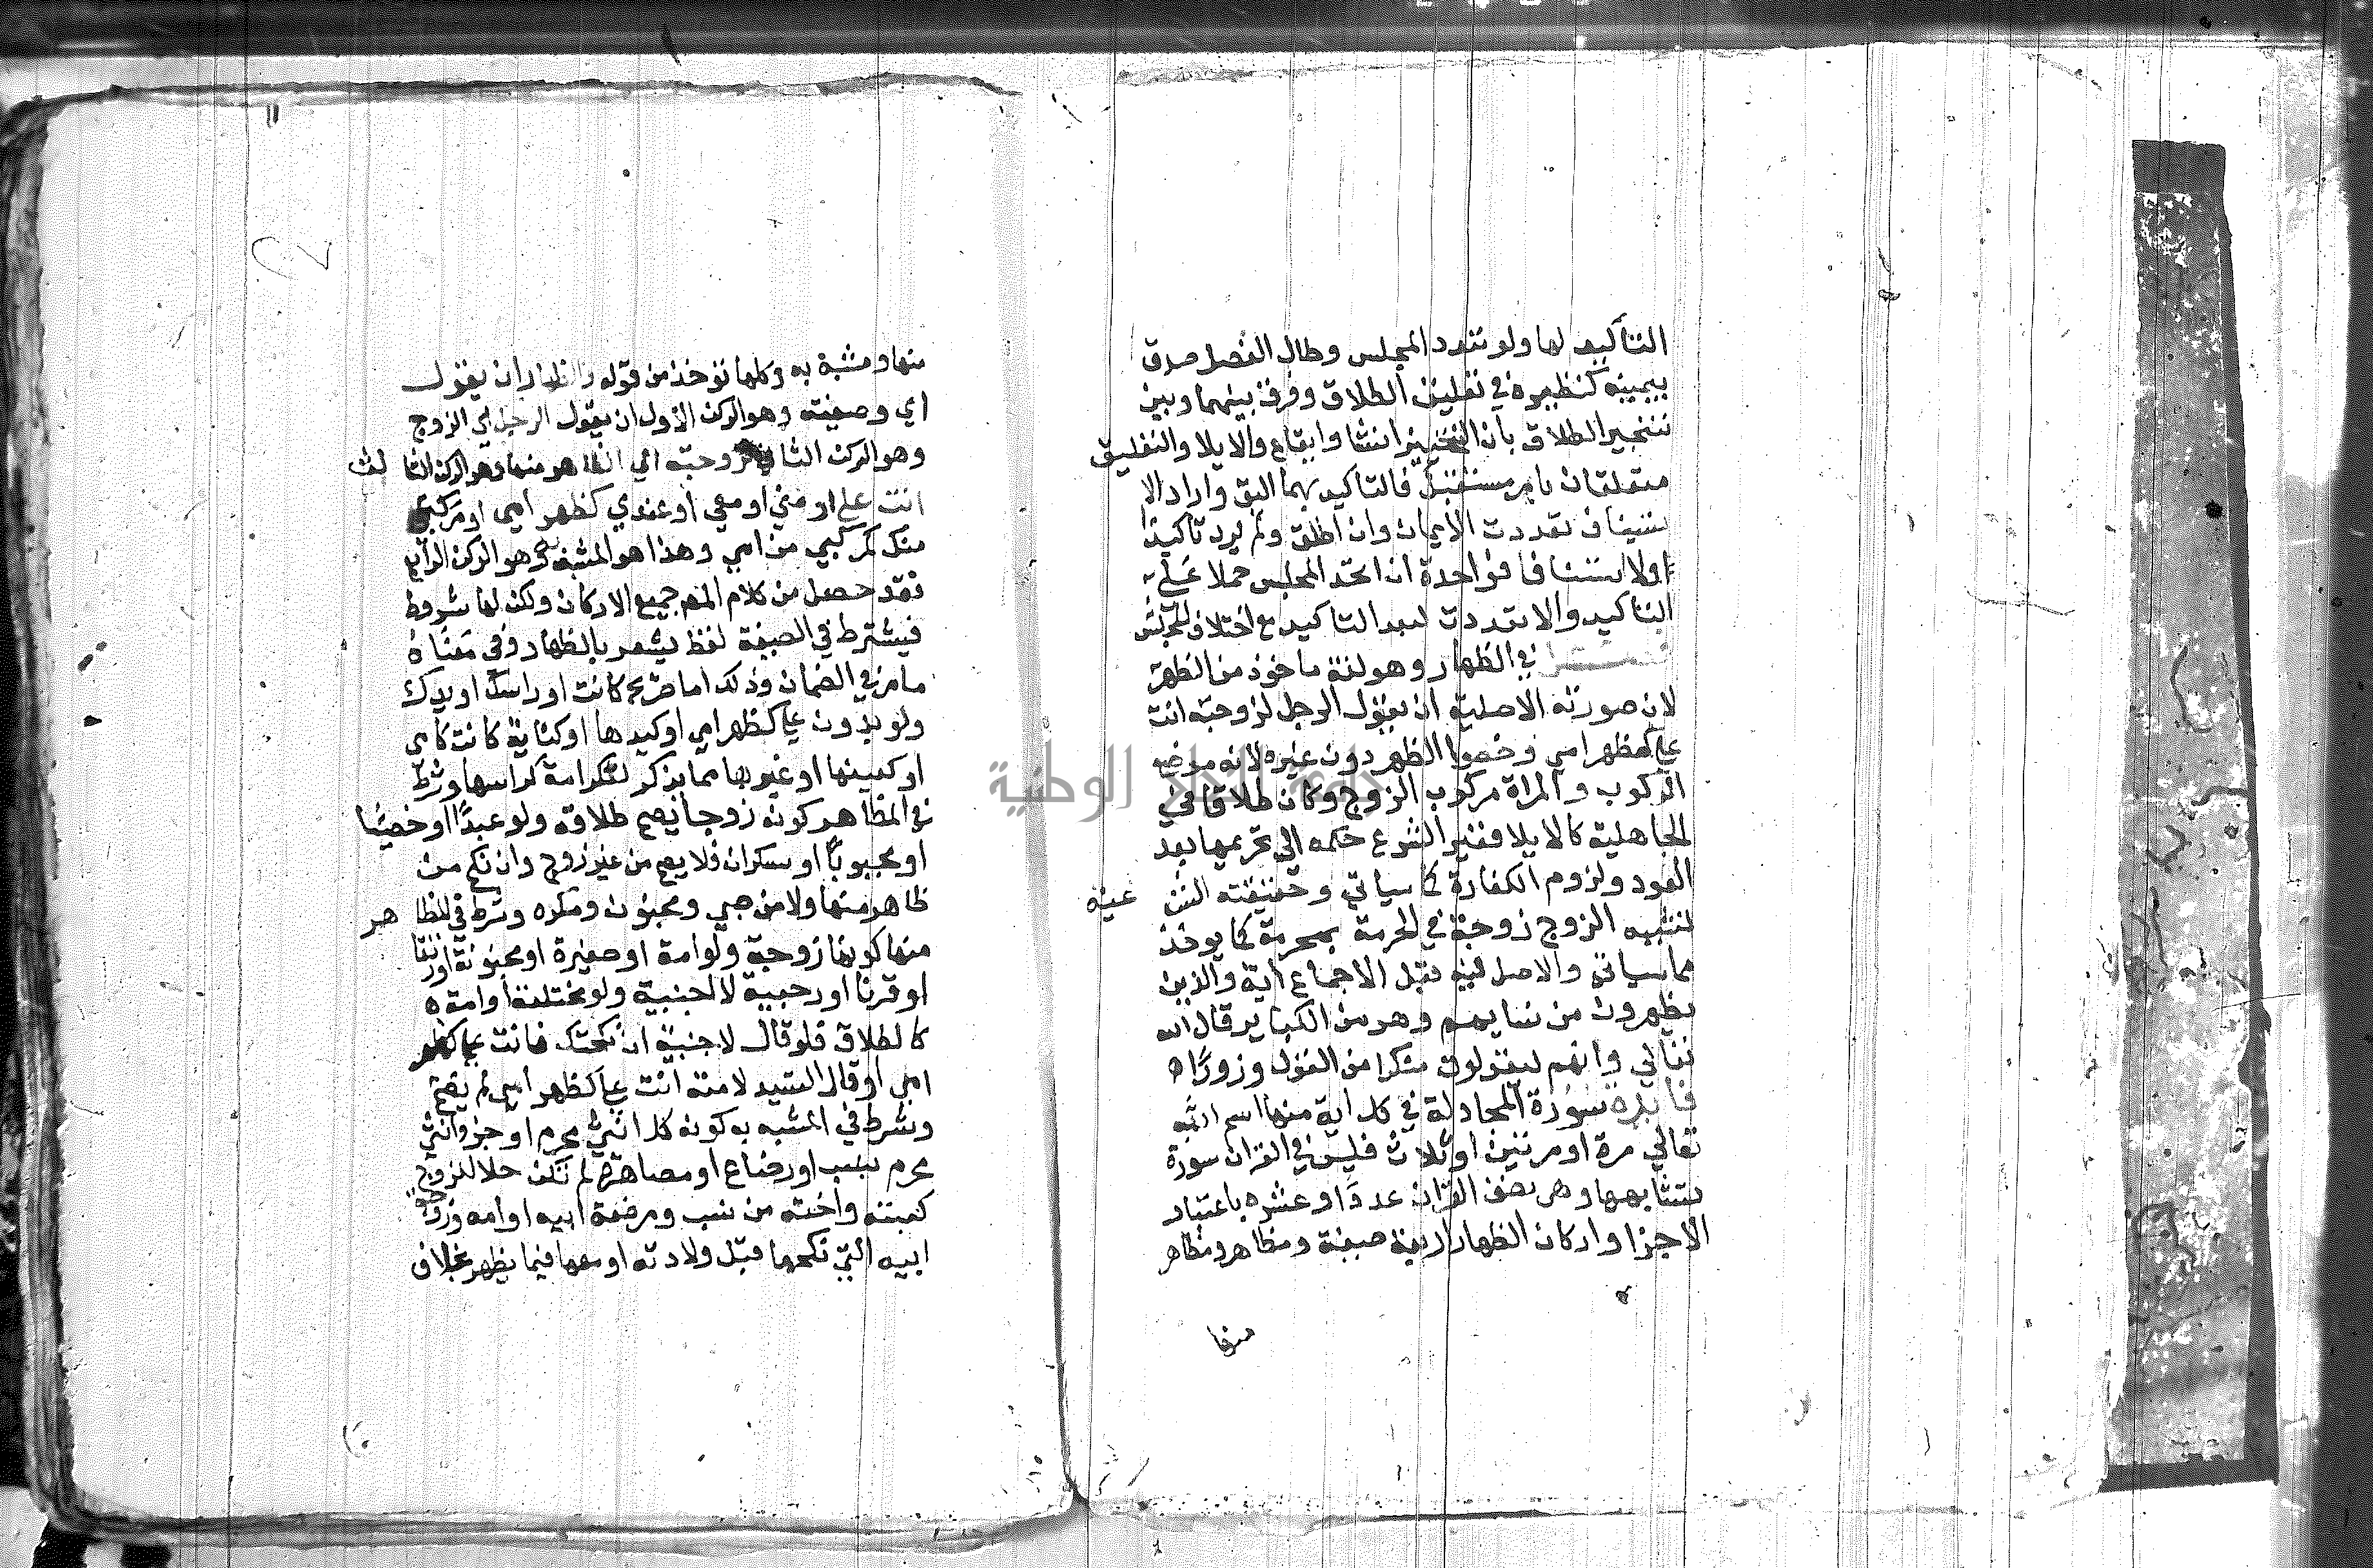 التأكيد لها ولو تعدد المجلس وطال الفصل صدق
بيمينه كنظيره في تعليق الطلاق وفرق بينهما وبين
تنجيز الطلاق بان التنجيز انشا وايقاع والايلا والتعليق
متعلقان بامر مستقبل فالتاكيد بهما اليق واراد الا
ستيناف تعددت الايمان وان اطلق ولم يرد تاكيدا
اولا استينافا فواحدة ان اتحد المجلس حملا على
التاكيد والا تعددت لبعد التاكيد مع اختلاف المجلس
في الظهار وهو لغة ماخوذ من الظهر
لان صورته الاصلية ان يقول الرجل لزوجته انت
علي كظهر امي وخصوا الظهر دون غيره لانه موضع
الركوب والمراة مركوب الزوج وكان طلاقا في
الجاهلية كالايلا فغير الشرع حكمه الي تحريمها بعد
العود ولزوم الكفارة كما سياتي وحقيقته الشر عية
تشبيه الزوج زوجته في الحرمة بمحرمة كما يوخذ
مما سياتي والاصل فيه قبل الاجماع اية والذين
يظهرون من نسايهم وهو من الكباير قال الله
تعالي وانهم ليقولون منكرا من القول وزورا ه
فايدة سورة المجادلة في كل اية منها اسم الله
تعالي مرة او مرتين او ثلاث فليس في القران سورة
تشابهها وهي نصف القران عددا وعشره باعتبار
الاجزا واركان الظهار اربعة صيغة ومظاهر ومظاهر
منها
١١
٢٧
منها ومشبة به وكلها توخذ من قوله والظهار ان يقول
اي وصيغته وهو الركن الاول ان يقول الرجل اي الزوج
وهو الركن الثاني لزوجته اي المظاهر منها وهو الركن الثا لث
انت علي او مني او معي او عندي كظهر امي او مركبي
منك كمركبي من امي وهذا هو المشبه به وهو الركن الرابع
فقد حصل من كلام المص جميع الاركان ولكن لها شروط
فيشترط في الصيغة لفظ يشعر بالظهار وفي معناه
ما مر في الضمان وذلك اما صريح كانت او راسك او يدك
ولو بدون علي كظهر امي او كيدها او كناية كانت كامي
او كعينها او غيرها مما يذكر للكرامة كراسها وشرط
في المظاهر كونه زوجا يصح طلاقه ولو عبدا او خصيا
او مجبوبا او سكران فلا يصح من غير زوج وان نكح من
ظاهر منها ولا من صبي ومجنون ومكره وشرط في المظا هر
منها كونها زوجة ولو امة او صغيرة او مجنونة او رتقا
او قرنا او رجعية لا اجنبية ولو مختلعة او امة ه
كالطلاق فلو قال لاجنبية ان نكحتك فانت علي كظهر
امي او قال السيد لامته انت علي كظهر امي لم يصح
وشرط في المشبه به كونه كل انثي محرم او جزو انثي
محرم بنسب او رضاع او مصاهرة لم تكن حلا للزوج
كبنته واخته من نسب ومرضعة ابيه او امه وزوجة
ابيه التي نكحها قبل ولادته او معها فيما يظهر بخلاف